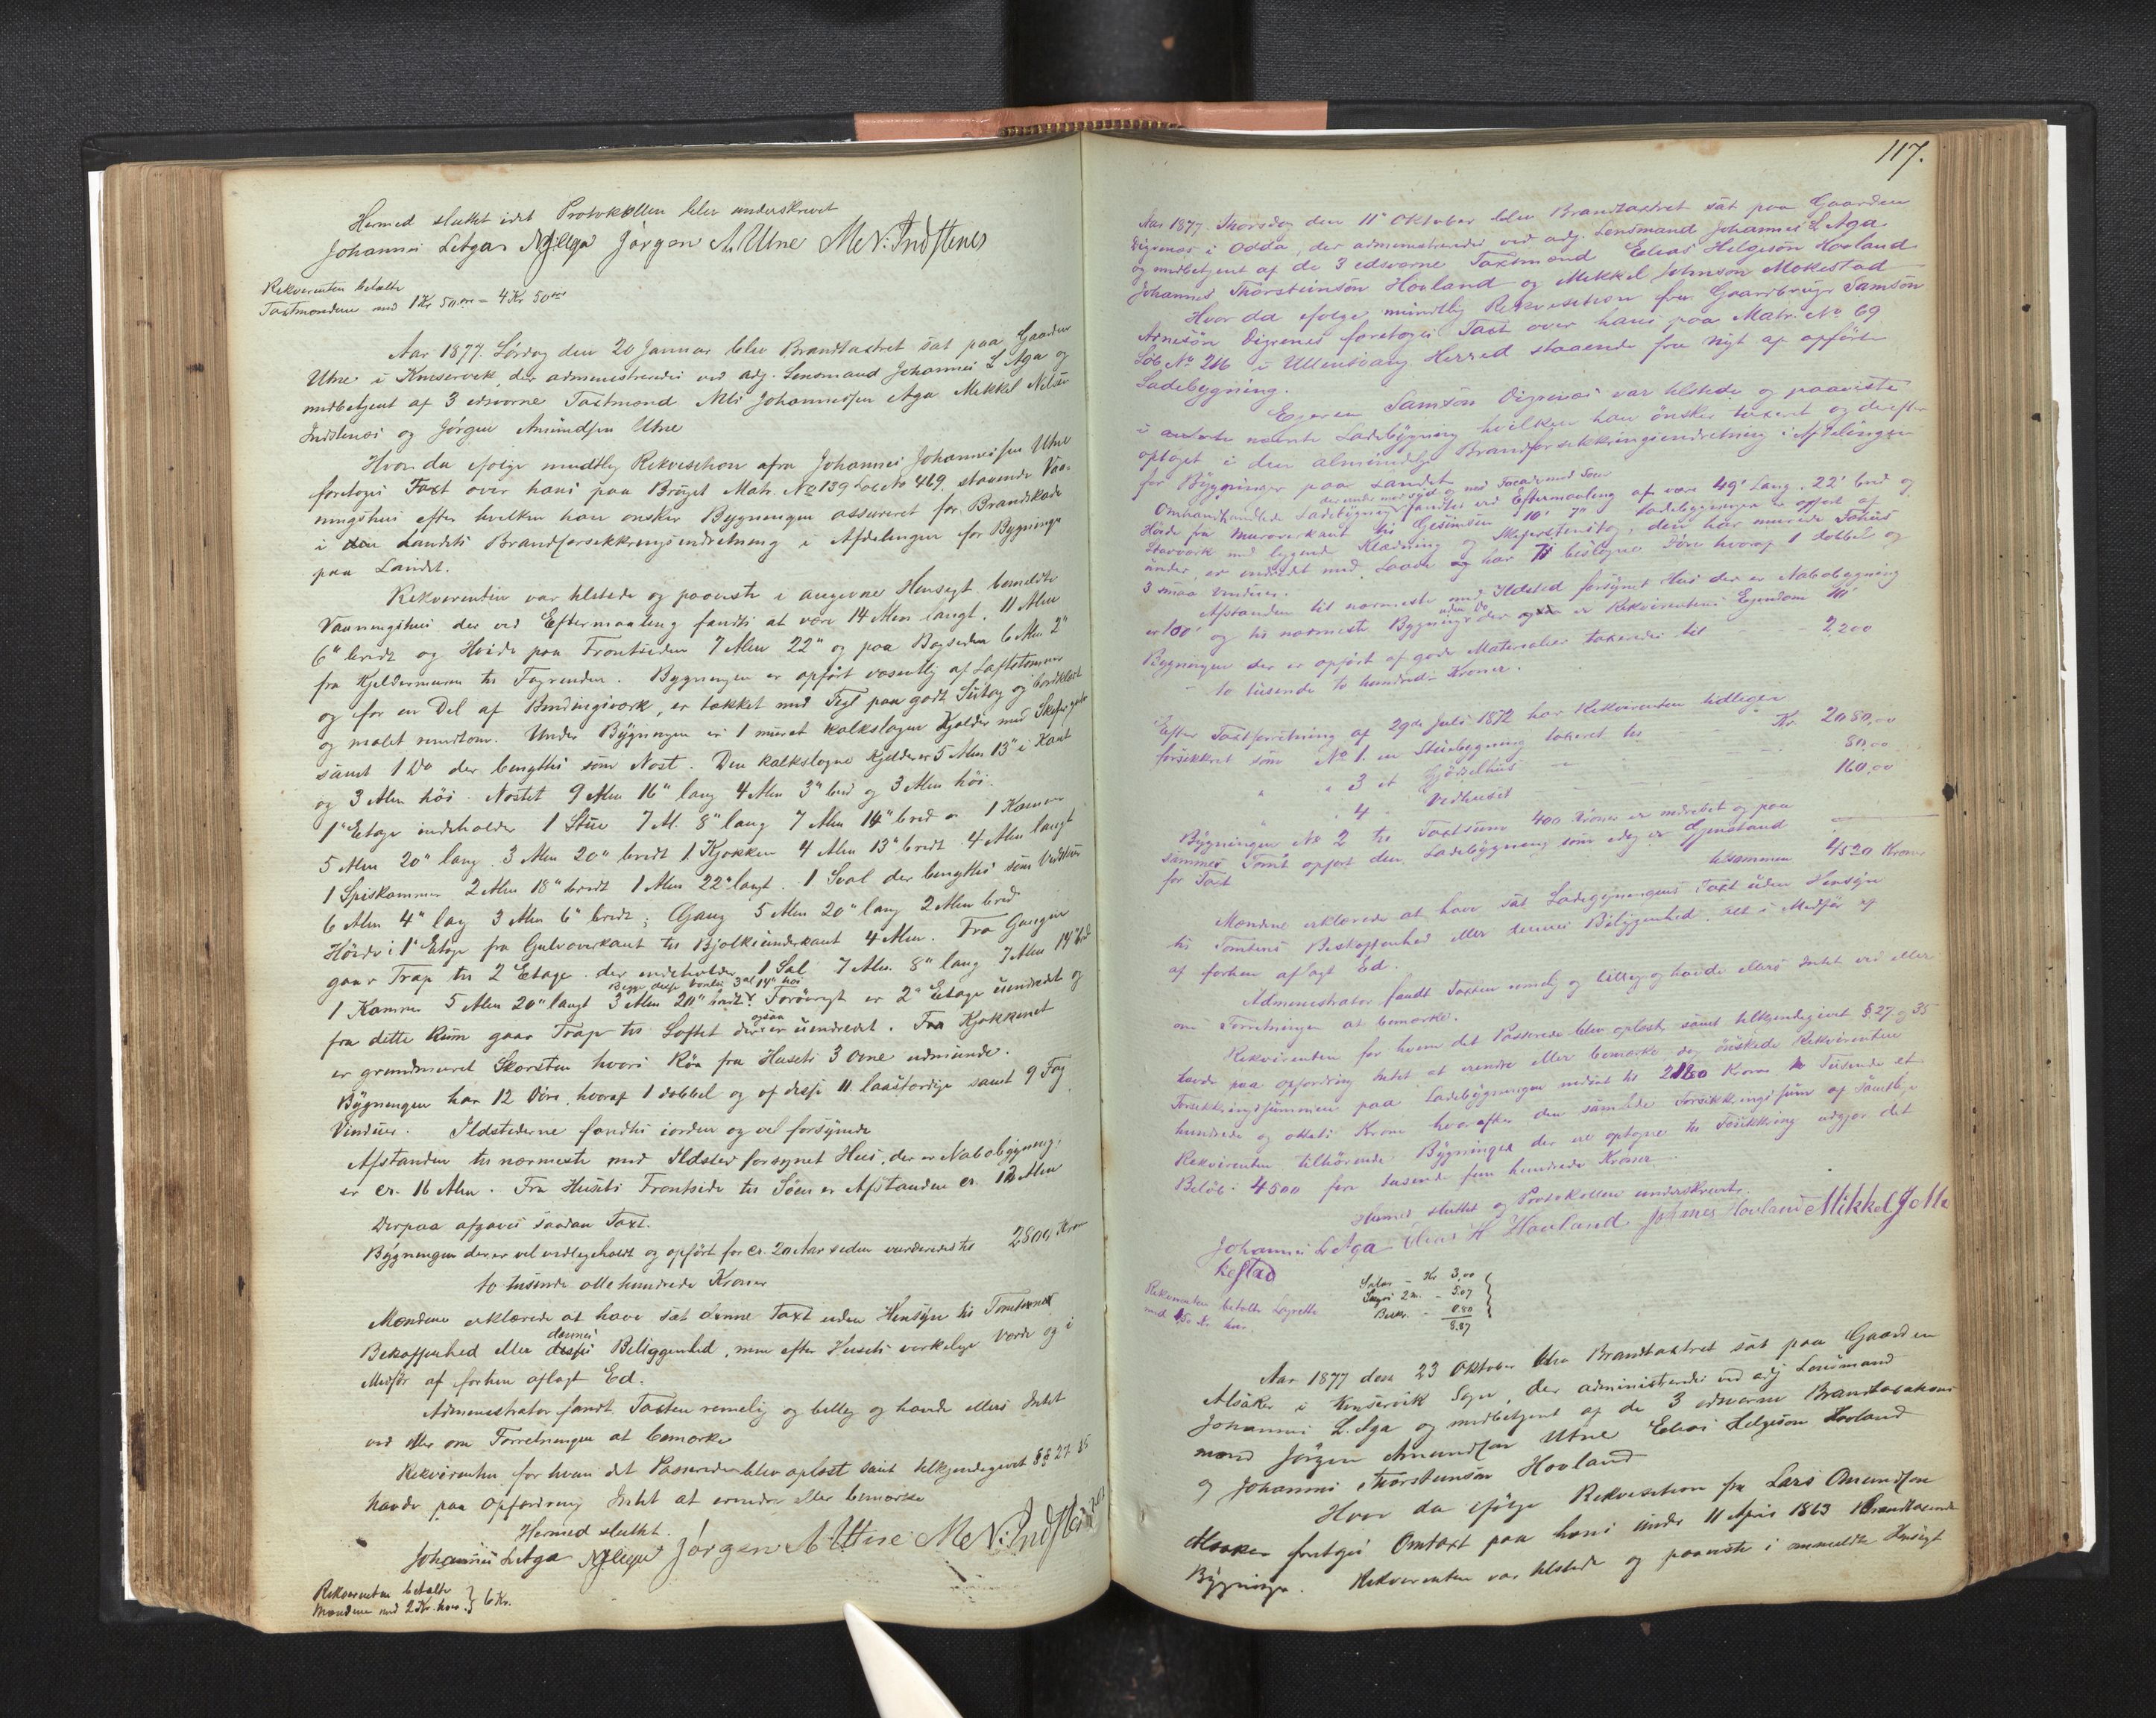 Hermed sluttet idet Protokollen blev underskrevet
Johannes L Aga N J Aga Jørgen A. Utne M. N. Indstenes
Rekvirenten betalte
Taxtmændene med 1 Kr 50 øre = 4 Kr 50 øre
Aar 1877. Lørdag den 20 Januar blev Brandtaxtret sat paa Gaarden
Utne i Kinservik, der administreredes ved adj. Lensmand Johannes L Aga og
medbetjent af 3 edsvorne Taxtmænd Nils Johannessen Aga Mekkel Nilsen
Indstenes og Jørgen Amundsen Utne
Hvor da ifølge mundtlig Rekvisition afra Johannes Johannessen Utne
foretoges Taxt over hans paa Bruget Matr. No 139 Løb No 469 staaende Vaa-
ningshus efter hvilken han ønsker Bygningen assureret for Brandskade
i den Landets Brandforsekkringsindretning i Afdelingen for Bygninger
paa Landet.
Rekvirenten var tilstede og paaviste i angivne Hensigt bemeldte
Vaaningshus der ved Eftermaaling fandtes at være 14 Alen langt, 11 Alen
6" bredt og Høide paa Frontsiden 7 Alen 22" og paa Bagsiden 6 Alen 2"
fra Kjeldermuren til Tagrenden. Bygningen er opført væsentlig af Laftetømmer
og for en Del af Bindingsværk, er tækket med Tegl paa godt Sutag og bordklædt
og malet rundtom. Under Bygningen er 1 muret kalkslagen Kjelder med
samt 1 Do der benyttes som Nøst. Den kalkslagne Kjelder er 5 Alen 13" i Kant
og 3 Alen høi. Nøstet 9 Alen 16" lang 4 Alen 3" bred og 3 Alen høi.
1ste Etage indeholder 1 Stue 7 Al. 8" lang 7 Alen 14" bred, 1 Kammer
5 Alen 20" lang 3 Alen 20" bredt 1 Kjøkken 4 Alen 13" bredt 4 Alen langt
1 Spiskammer 2 Alen 18" bredt 1 Alen 22" langt. 1 Sval der benyttes som Vedskur
6 Alen 4" lang 3 Alen 6" bredt; Gang 5 Alen 20" lang 2 Alen bred
Høide i 1ste Etage fra Gulvoverkant til Bjelkeunderkant 4 Alen. Fra Gangen
gaar Trap til 2 Etage der indeholder 1 Sal 7 Alen 8" lang 7 Alen 14" bred
1 Kammer 5 Alen 20" langt 3 Alen 20" bredt. Forøvrigt er 2den Etage uindredet og
fra dette Rum gaar Trap til Loftet der ogsaa er uindredet. Fra Kjøkkenet
er grundmuret Skorsten hvori Røg fra Husets 3 Ovne udmunde.
Bygningen har 12 Døre, hvoraf 1 dobbel og af disse 11 laasfærdige samt 9 Fag
Vinduer. Ildstederne fandtes iorden og vel forsynede
Afstanden til nærmeste med Ildsted forsynet Hus, der er Nabobygning
er cr. 16 Alen. Fra Husets Frontside til Søen er Afstanden cr. 12 Alen
Derpaa afgaves saadan Taxt.
Bygningen der er vel vedligeholdt og opført for cr. 20 Aar siden vurderedes til 2800 Kroner
to tusinde otte hundrede Kroner
Mændene erklærede at have sat denne Taxt uden Hensyn til Tomtens
Beskaffenhed eller dennes Beliggenhed, men efter Husets virkelige Værde og i
Medfør af forhen aflagt Ed.
Administrator fandt Taxten remelig og billig og havde ellers Intet
ved eller om Forretningen at bemærke
Rekvirenten for hvem det Passerede blev oplæst samt tilkjendegivet §§ 27 35
havde paa Opfordring Intet at erindre eller bemærke
Hermed sluttet.
Johannes L Aga N J Aga Jørgen A Utne M. N. Indstenes
Rekvirenten betalte
Mændene med 2 Kr. hver } 6 Kr.
117.
Aar 1877 Thorsdag den 11te Oktober blev Brandtaxtret sat paa Gaarden
Digrenes i Odda, der administreredes ved adj. Lensmand Johannes L Aga
og medbetjent af de 3 edsvorne Taxtmænd Elias Helgesøn Hovland
Johannes Thorsteinsøn Hovland og Mikkel Johnsøn Mokestad
Hvor da ifølge mundtlig Rekvisition fra Gaardbruger Samson
Arnesøn Digrenes foretoges Taxt over hans paa Matr. No 69
Løb No 216 i Ullensvang Herred staaende fra nyt af opførte
Ladebygning.
Eieren Samsøn Digrenes var tilstede og paaviste
i nævnte Ladebygning hvilken han ønsker taxeret og derefter
optaget i den almindelige Brandforsekkringsindretning i Afdelingen
for Bygninger paa Landet.
Omhandlede Ladebygning fandtes ved Eftermaaling at være 49' lang, 22' bred og
Høide fra Muroverkant til Gesimsen 10' 7" Ladebygningen er opført af
Stavværk med liggende Klædning og Skiferstenstag, den har murede Føhus
under, er indredet med Laave og har 7 beslagne Døre hvoraf 1 dobbel og
3 smaa Vinduer.
Afstanden til nærmeste med Ildsted forsynet Hus der er Nabobygning
er 100' og til nærmeste Bygning uden Do der er Rekvirentens Eiendom 10'
Bygningen der er opført af gode Materialier taxeredes til 2,200
- to tusende to hundrede Kroner.
Efter Taxtforretning af 29de Juli 1872 har Rekvirenten tidligere
forsikkret som No 1. en Stuebygning taxeret til Kr. 2080,00
" " 3 et Gjødselhus 80,00
" " 4 - Vedhuset 160,00
Bygningen No 2 til Taxtsum 400 Kroner er nedrebet og paa
sammes Tomt opført den Ladebygning som idag er Gjenstand
for Taxt tilsammen 4520 Kroner
Mændene erklærede at have sat Ladebygningens Taxt uden Hensyn
til Tomtens Beskaffenhed eller dennes Beliggenhed, Alt i Medfør af
af forhen aflagt Ed.
Administrator fandt Taxten remelig og billig og havde ellers Intet ved eller
om Forretningen at bemærke.
Rekvirenten for hvem det Passerede blev oplæst, samt tilkjendegivet § 27 og 35
havde paa Opfordring Intet at erindre eller bemærke dog ønskede Rekvirenten
Forsikkringssummen paa Ladebygningen nedsat til 2180 Kroner to Tusende et
hundrede og otteti Krone hvorefter den samlede Forsikkringssum af samtlige
Rekvirenten tilhørende Bygninger der ere optagne til Forsikkring udgjør det
Beløb: 4500 fire tusende fem hundrede Kroner
Hermed sluttet og Protokollen underskrevet.
Johannes L Aga Elias H Hovland Johannes Hovland Mikkel J Mo
kestad
Rekvirenten betalte Lagrette
med
Salær - Kr 3,00
Skyds 2 m. - 5.07
Bevær. - 0.80
8.87
Aar 1877 den 23 Oktober blev Brandtaxtret sat paa Gaarden
Alsaker i Kinservik Sogn, der administreredes ved adj Lensmand
Johannes L. Aga og medbetjent af de 3 edsvorne Brandtaxations
mænd Jørgen Amundsen Utne Elias Helgesøn Hovland
og Johannes Thorsteinsøn Hovland
Hvor da ifølge Rekvisition fra Lars Omundsen
Alsaker foretoges Omtaxt paa hans under 11 April 1863 Brandtaxerede
Bygninger. Rekvirenten var tilstede og paaviste i anmeldte Hensigt